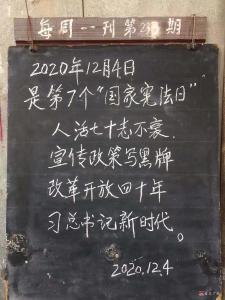 每周一刊第2 期
2020年12月4日
是第7个"国家宪法日"
人活七十志不衰.
宣传政策写黑牌
改革开放四十年
习总书记新时代。
2020.12.4